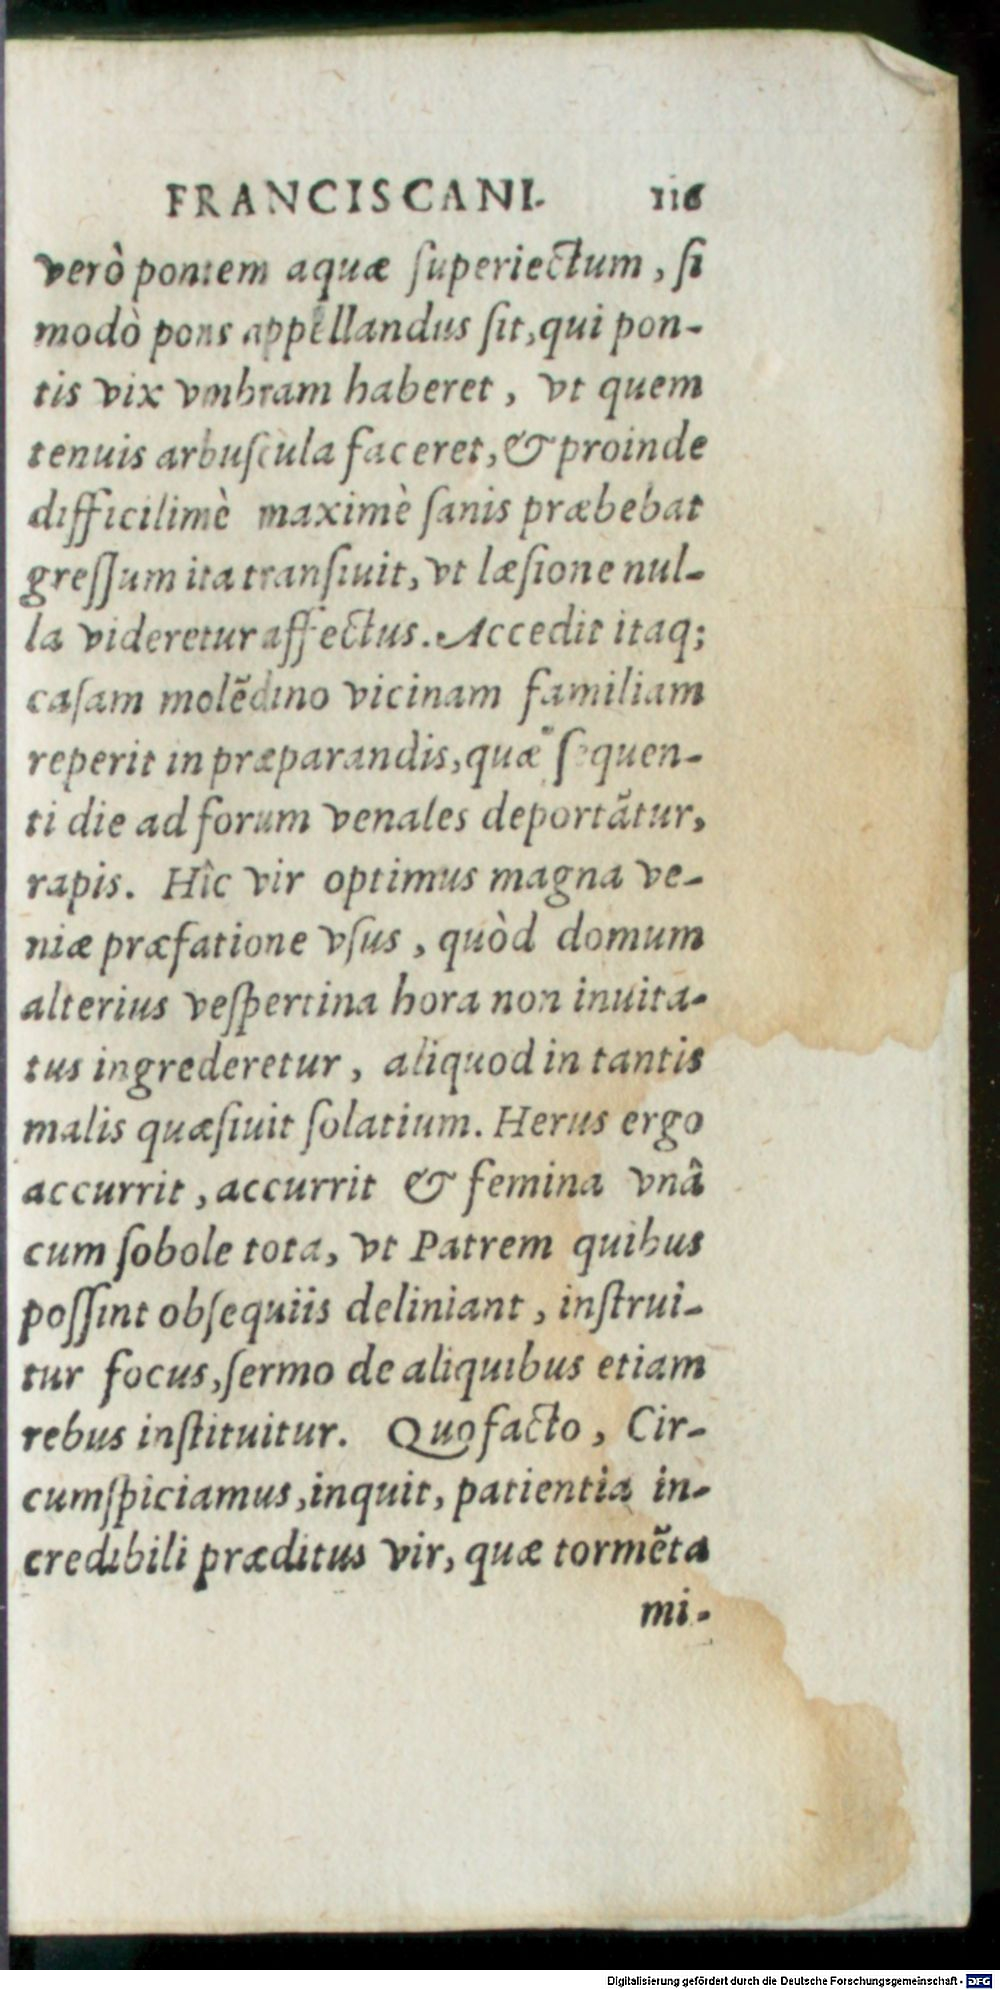 FRANCISCANI. 116
verò pontem aquæ ſuperiectum, ſi
modò pons appellandus ſit, qui pon-
tis vix vmbram haberet, vt quem
tenuis arbuſcula faceret, & proinde
difficilimè maximè ſanis præbebat
greſſum ita tranſiuit, vt læſione nul-
la videretur affectus. Accedit itaq;
caſam molẽdino vicinam familiam
reperit in præparandis, quæ ſequen-
ti die ad forum venales deportãtur,
rapis. Hîc vir optimus magna ve-
niæ præfatione vſus, quòd domum
alterius veſpertina hora non inuita-
tus ingrederetur, aliquod in tantis
malis quæſiuit ſolatium. Herus ergo
accurrit, accurrit & femina vnâ
cum ſobole tota, vt Patrem quibus
poſſint obſequiis deliniant, inſtrui-
tur focus, ſermo de aliquibus etiam
rebus inſtituitur. Quo facto, Cir-
cumſpiciamus, inquit, patientia in-
credibili præditus vir, quæ tormẽta
mi-
Digitalisierung gefördert durch die Deutsche Forschungsgemeinschaft - DFG